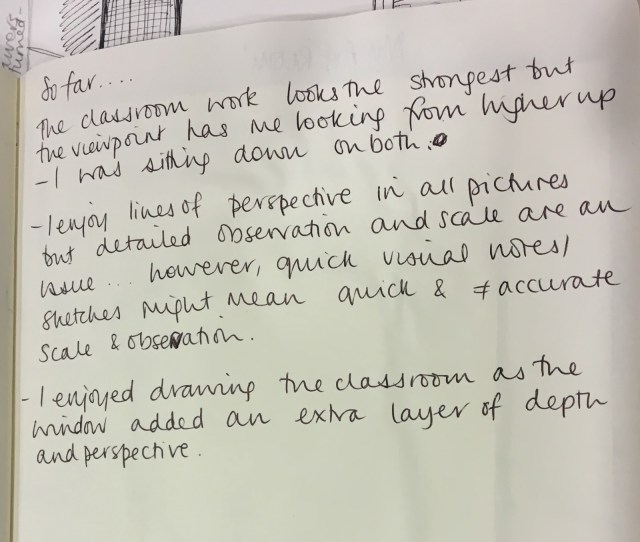 So far....
The classroom work looks the strongest but
the viewpoint has me looking from higher up
- I was sitting down on both.
- I enjoy lines of perspective in all pictures
but detailed observation and scale are an
issue ... however, quick visual notes/
sketches might mean quick & ≠ accurate
scale & observation.
- I enjoyed drawing the classroom as the
window added an extra layer of depth
and perspective.